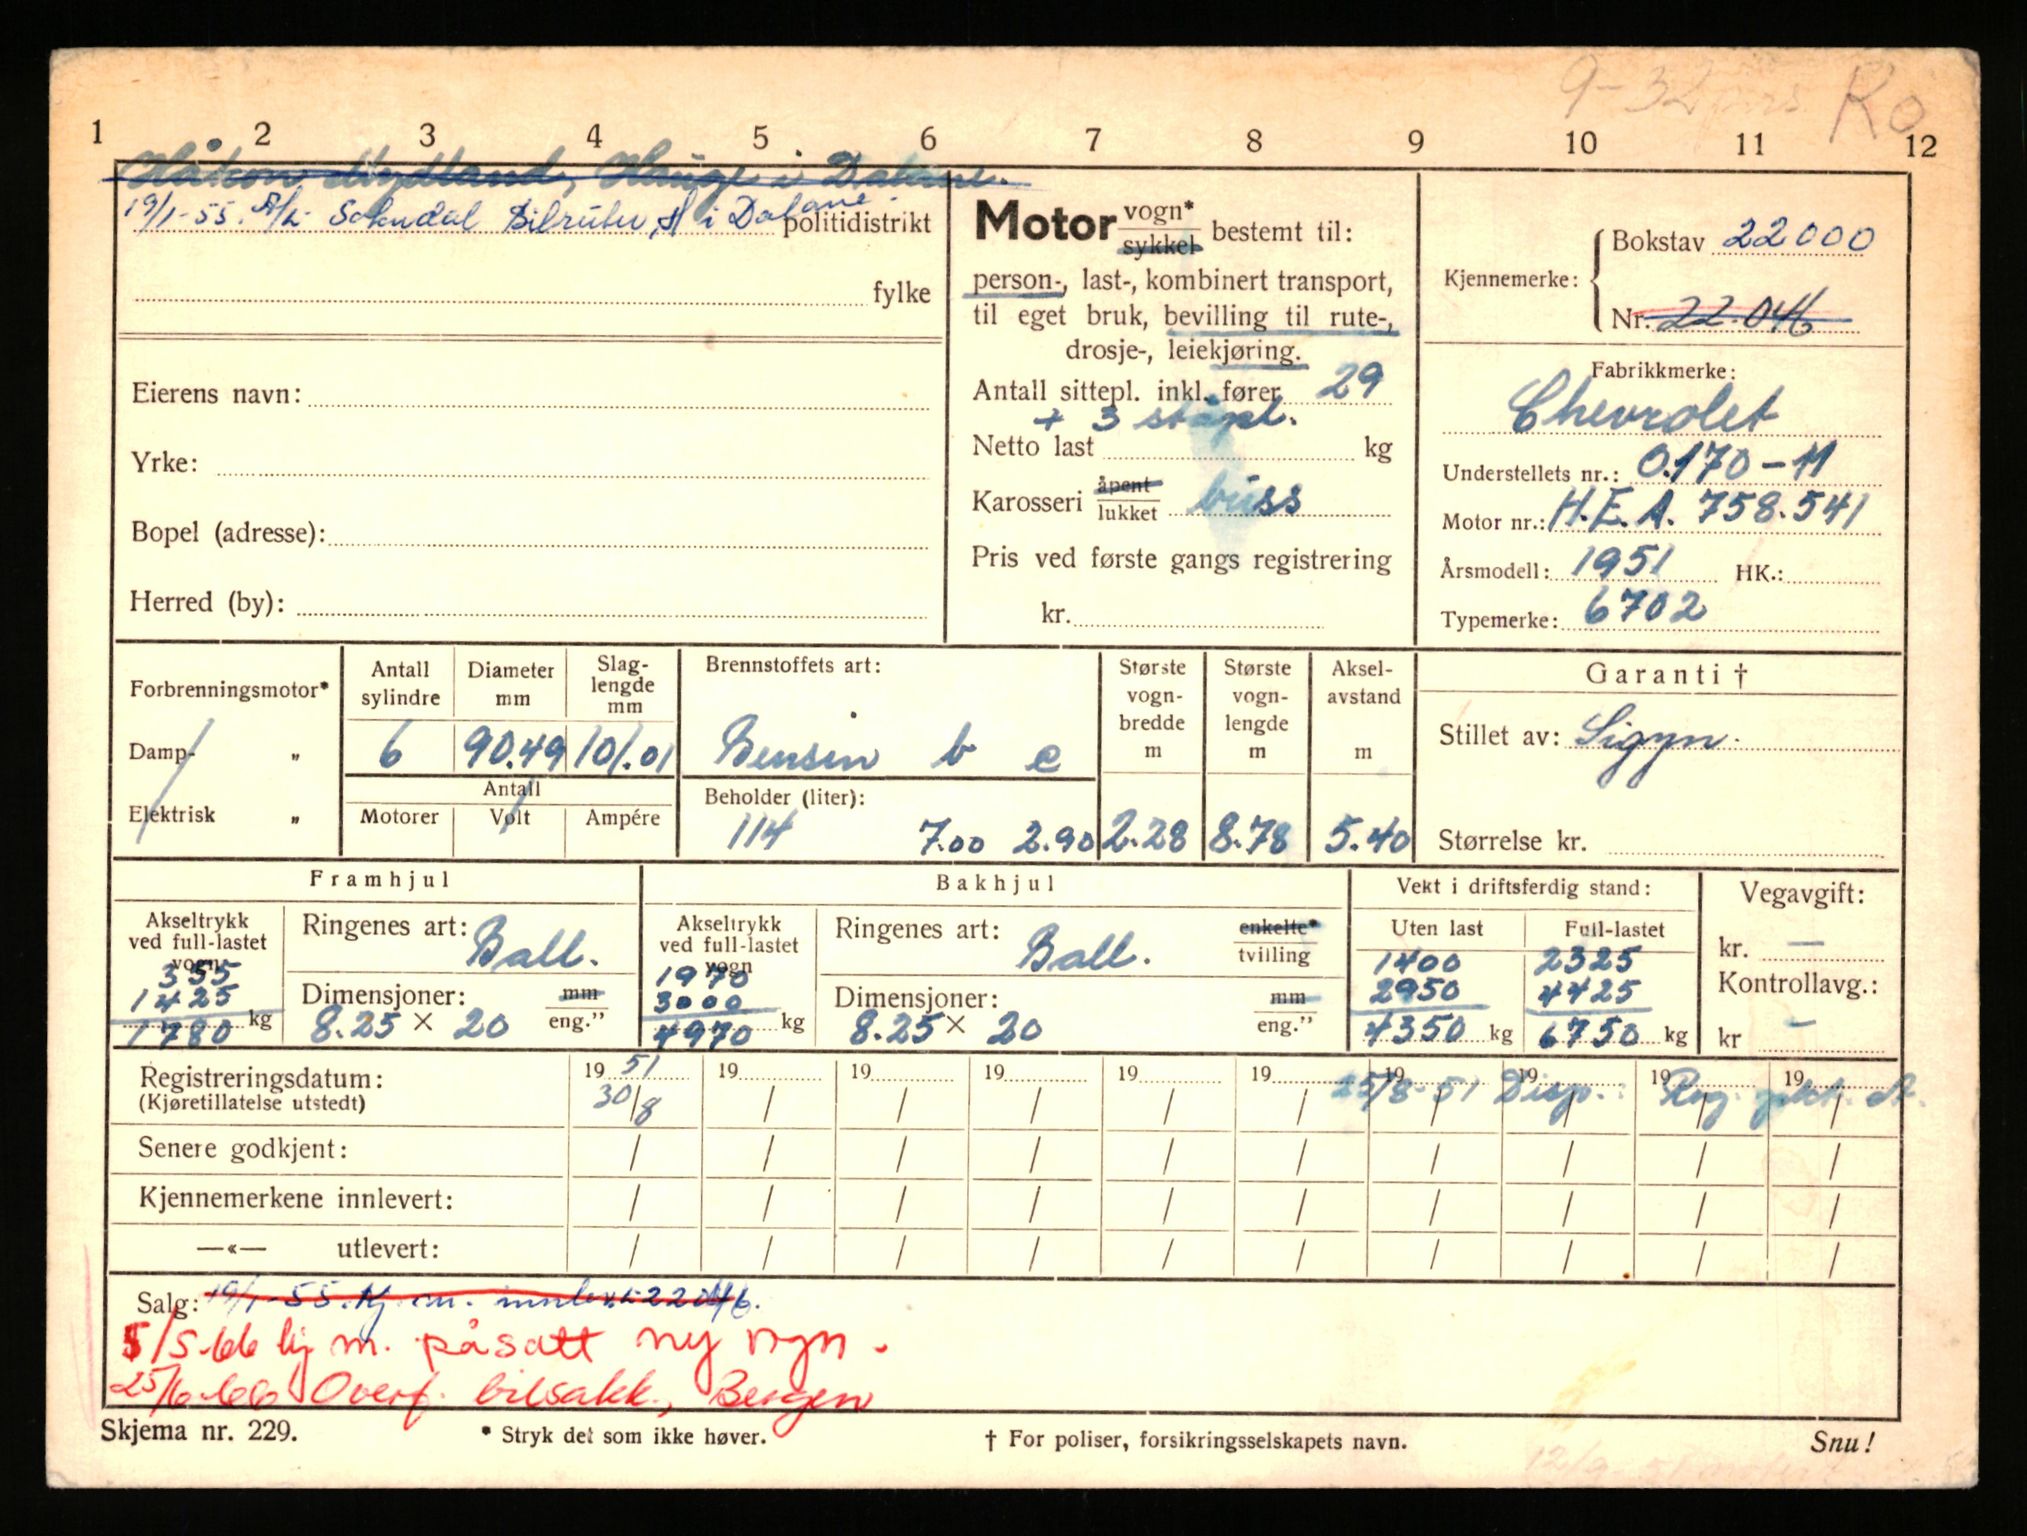 9-32 prs. Ro
1 2 3 4 5 6 7 8 9 10 11 12
Håkon Mydland, Hauge i Dalane.
19/1-55. A/L Sokndal Bilruter, H i Dalane. politidistrikt
fylke
Eierens navn:
Yrke:
Bopel (adresse):
Herred (by):
Motor vogn* sykkel bestemt til:
person-, last-, kombinert transport,
til eget bruk, bevilling til rute-,
drosje-, leiekjøring.
Antall sittepl. inkl. fører 29
+ 3 ståpl.
Netto last kg
Karosseri åpent lukket buss
Pris ved første gangs registrering
kr.
Kjennemerke:
Bokstav 22000
Nr. 22.046
Fabrikkmerke:
Chevrolet
Understellets nr.: 0.170-11
Motor nr.: H.E.A. 758.541
Årsmodell: 1951 HK.:
Typemerke: 6702
Forbrenningsmotor*
Damp- „
Elektrisk „
Antall sylindre
Diameter mm
Slaglengde mm
6 90.49 101.01
Antall
Motorer Volt Ampére
Brennstoffets art:
Bensin b c
Beholder (liter):
114 7.00 2.90
Største vognbredde m
2.28
Største vognlengde m
8.78
Akselavstand m
5.40
Garanti †
Stillet av: Sigyn.
Størrelse kr.
Framhjul
Akseltrykk ved full-lastet vogn
355
1425
1780 kg
Ringenes art: Ball.
Dimensjoner: mm
8.25 × 20 eng."
Bakhjul
Akseltrykk ved full-lastet vogn
1970
3000
4970 kg
Ringenes art: Ball. enkelte* tvilling
Dimensjoner: mm
8.25 × 20 eng."
Vekt i driftsferdig stand:
Uten last Full-lastet
1400 2325
2950 4425
4350 kg 6750 kg
Vegavgift:
kr. —
Kontrollavg.:
kr —
Registreringsdatum: 19 51 19 19 19 19 19 19 19 19 19
(Kjøretillatelse utstedt) 30/8 / / / / / / / / /
25/8-51 Disp.: Reg. gokt.
Senere godkjent: / / / / / / / / / /
Kjennemerkene innlevert: / / / / / / / / / /
—«— utlevert: / / / / / / / / / /
Salg: 19/1-55. Kj. m. innlev. 22046.
5/5-66 kj m. påsatt ny vgn.
25/6-66 Overf. bilsakk., Bergen
Skjema nr. 229.
* Stryk det som ikke høver.
† For poliser, forsikringsselskapets navn.
Snu!